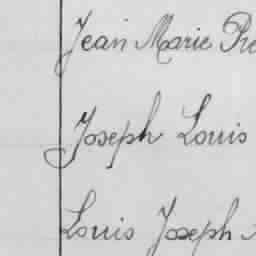 Jean Marie
Joseph Louis
Louis Joseph